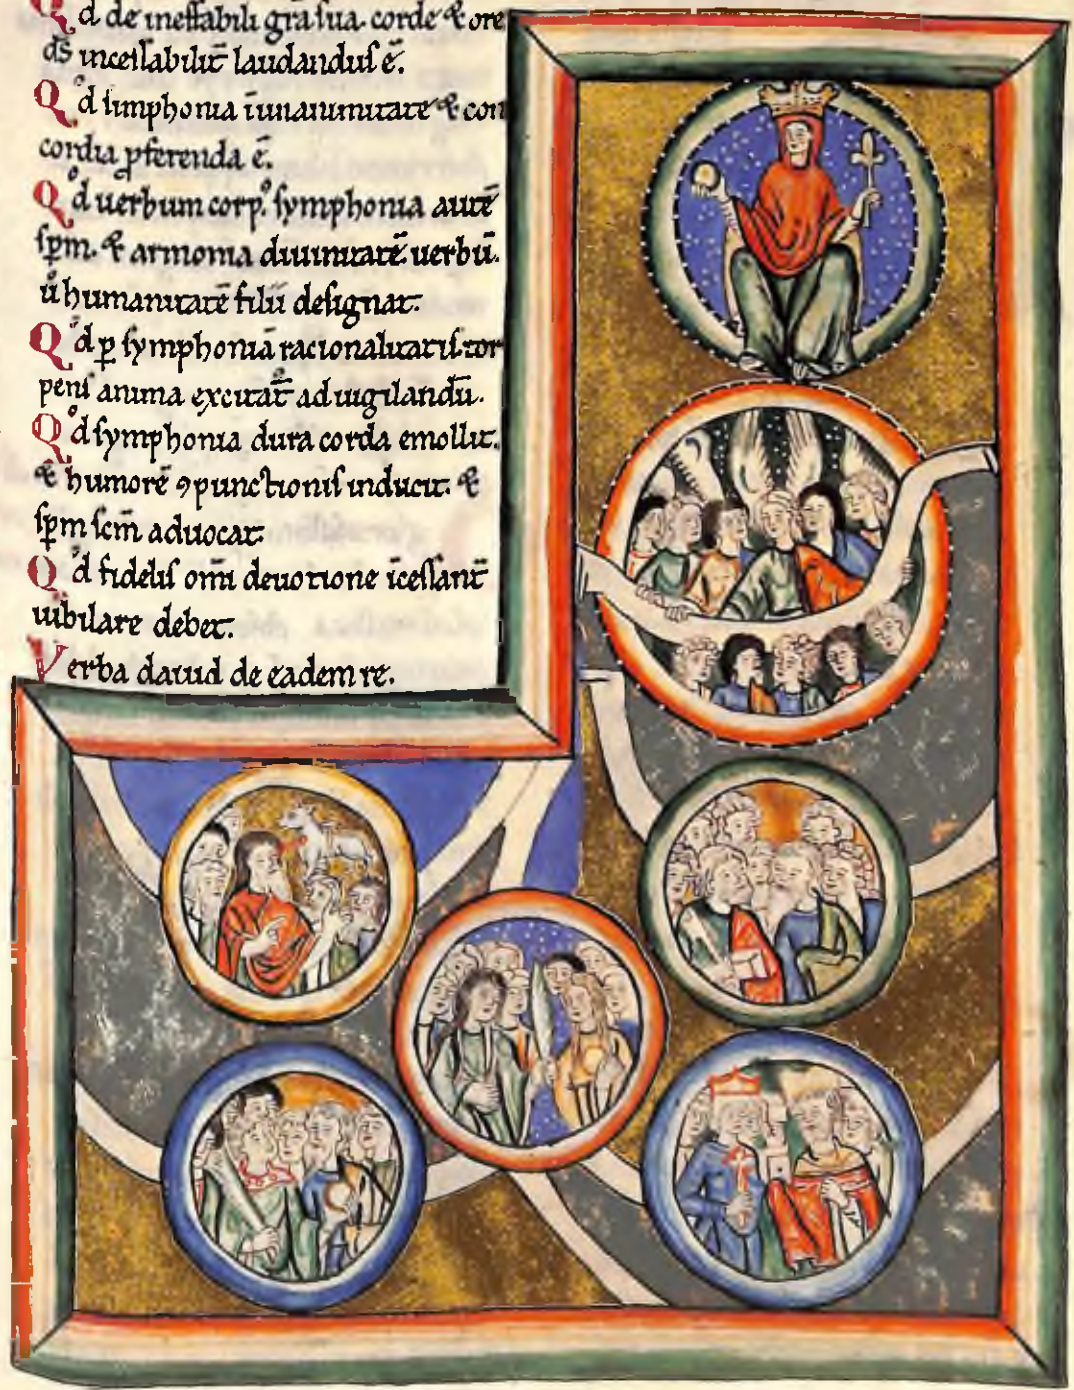 Qd de ineffabili gr̄a sua. corde & ore
d̄s incessabilit̄ laudandus ē.
Qd simphonia ī unanimitate & con
cordia pferenda ē.
Qd uerbum corp.º symphonia autē
sp̄m. & armonia diuinitatē. uerbū.
ů humanitatē filii designat.
Qd ꝑ symphoniā racionalitatis. tor
pens anima excitat̄ ad uigilandū.
Qd symphonia dura corda emollit.
& humorē ꝯpunctionis inducit. &
sp̄m sc̄m aduocat.
Qd fidelis om̄i deuotione īcessant̄
iubilare debet.
Verba dauid de eadem re.